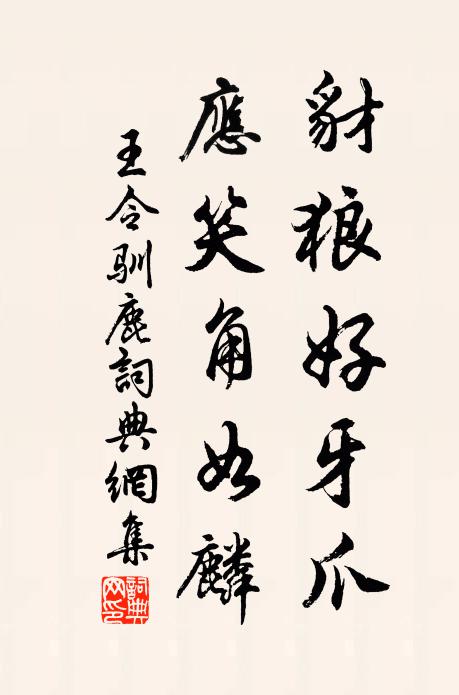 豺狼好牙爪
應笑角如麟
王令馴鹿詞典網集
詞典
网印